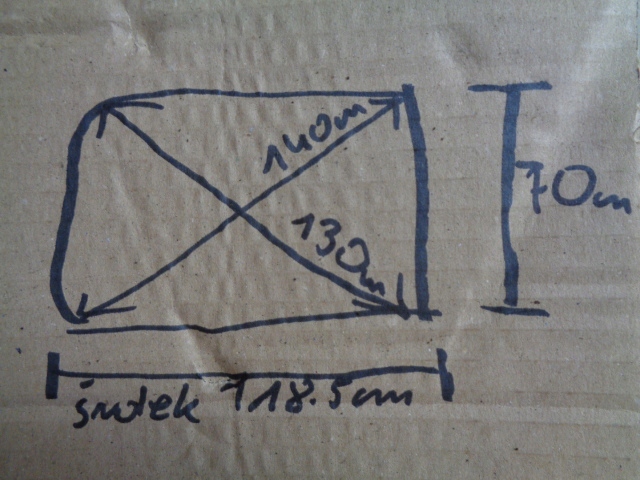 140cm
130cm
70cm
środek 118.5cm